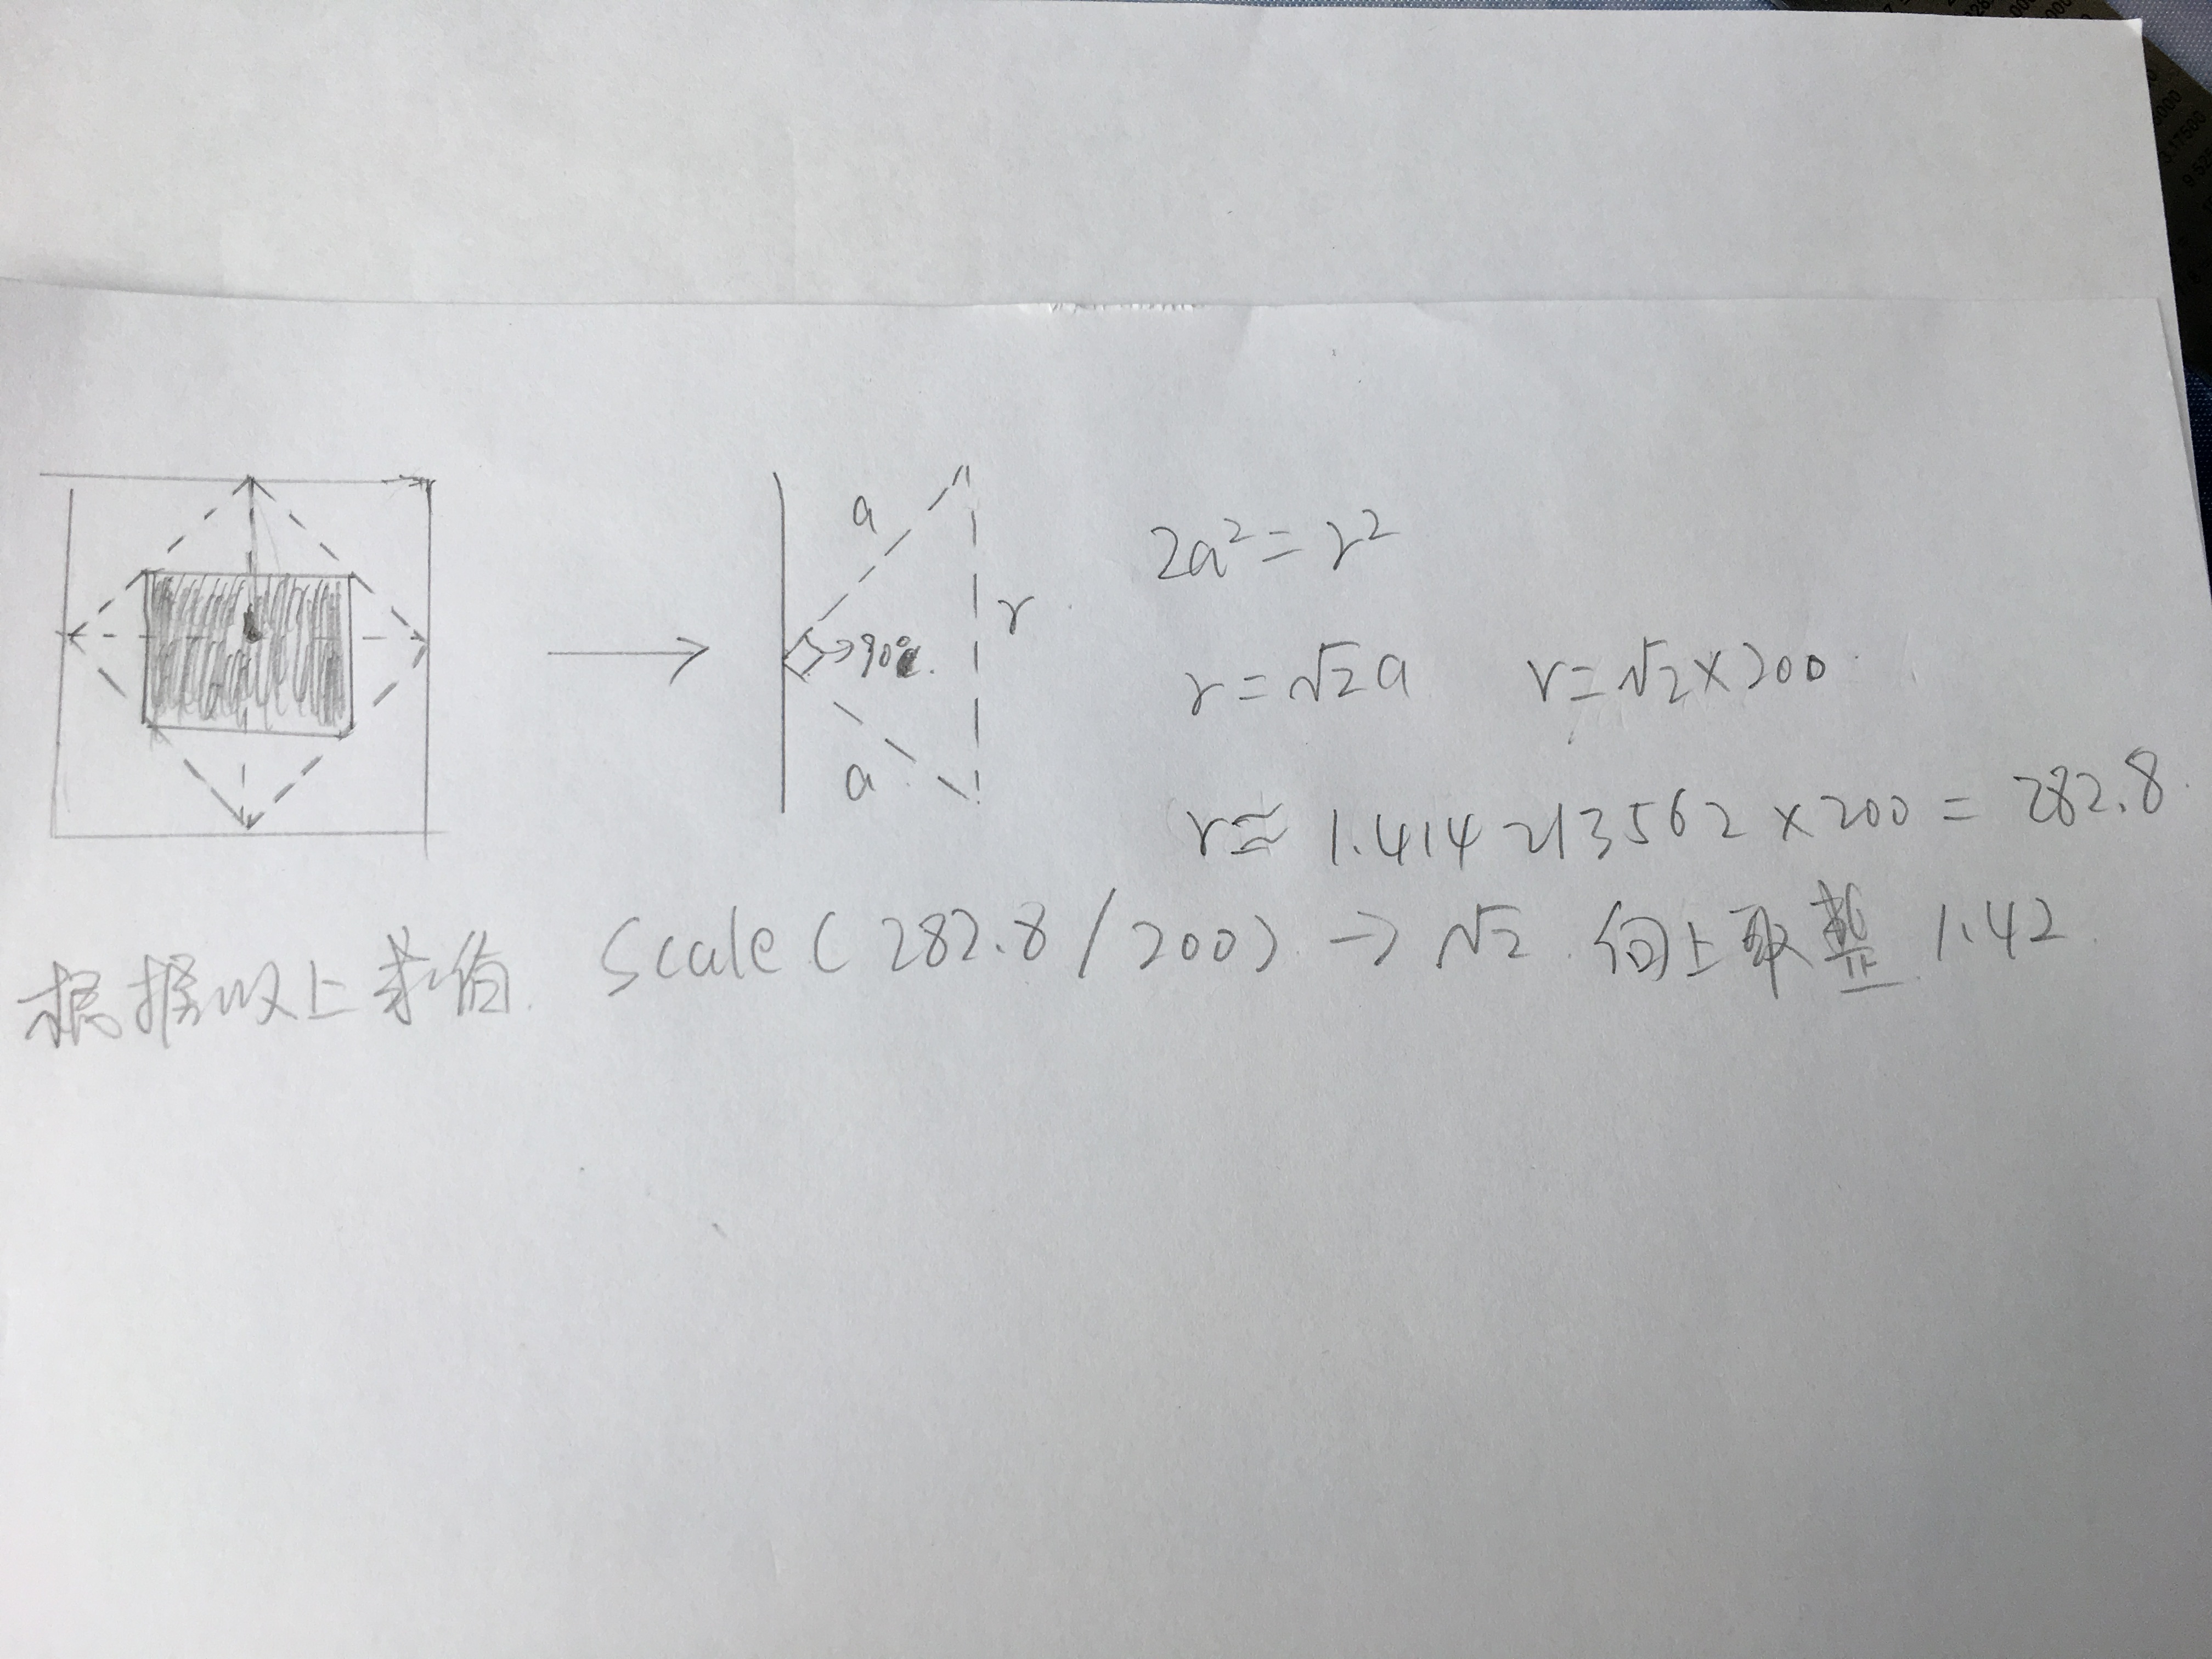 a
r
→90°
a
2a² = r²
r = √2a r = √2 × 200
r ≈ 1.414213562 × 200 = 282.8
根据以上求值. Scale(282.8/200) → √2 向上取整 1.42